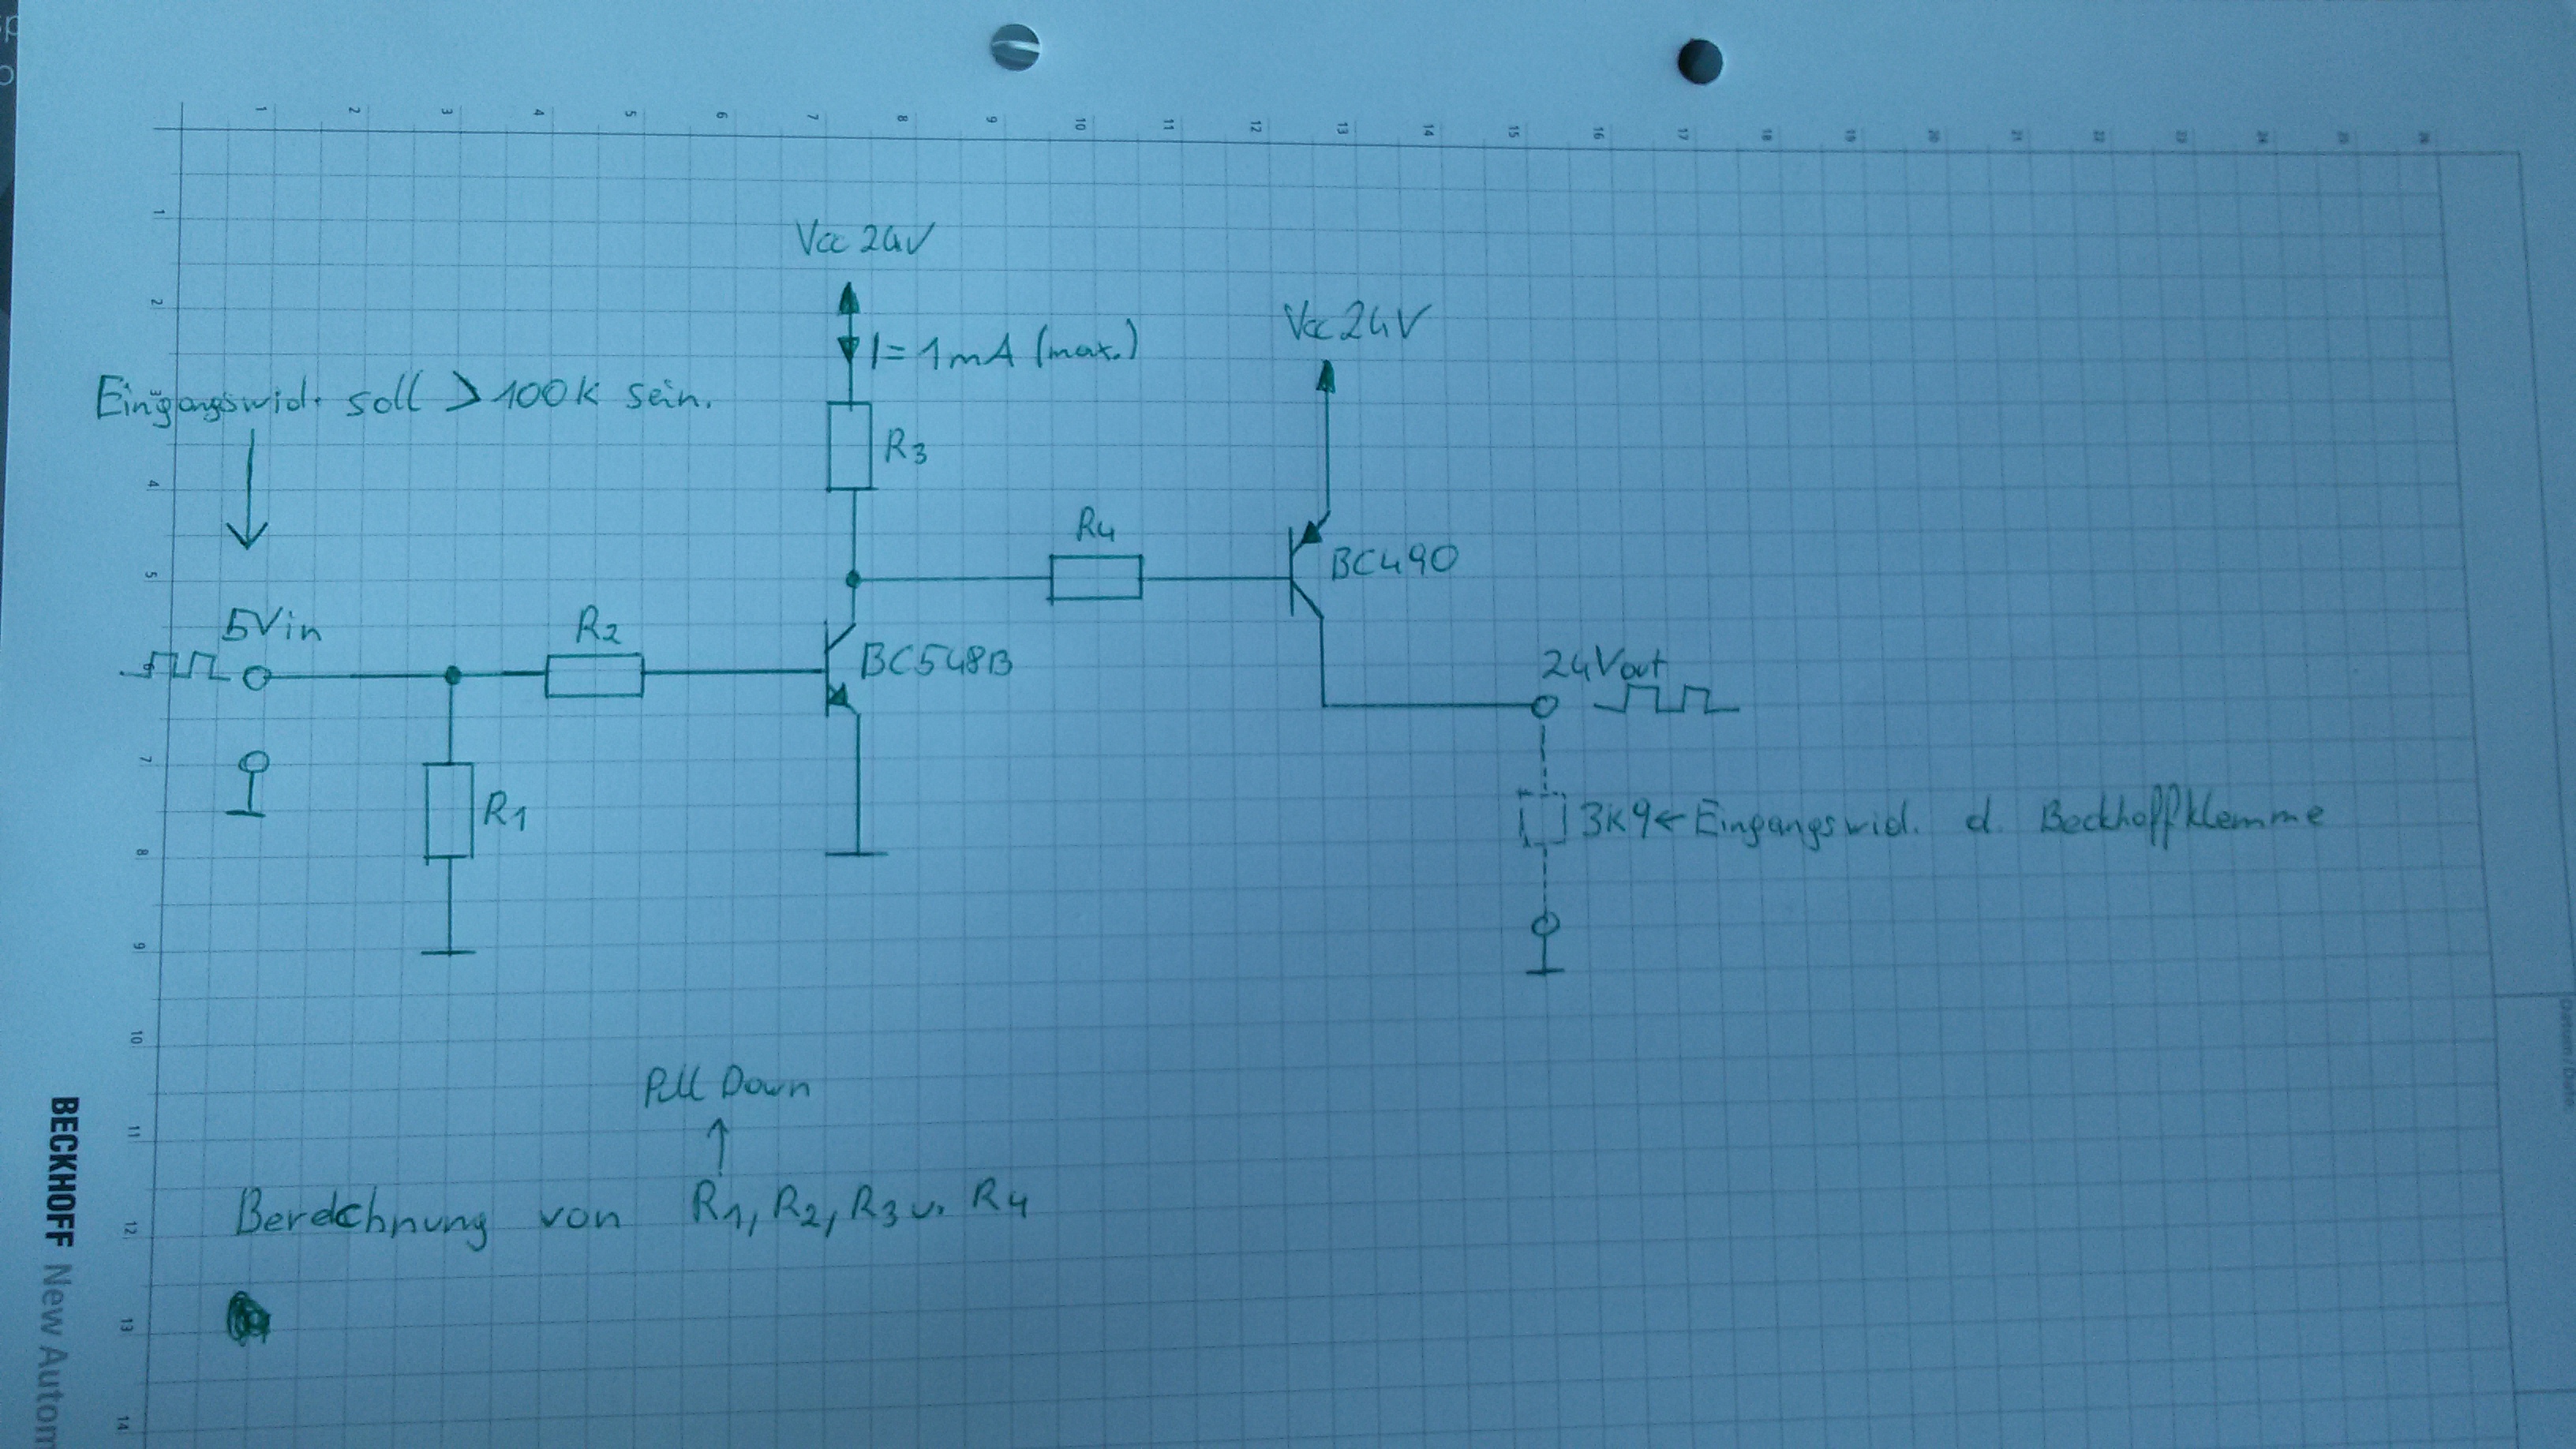 1 2 3 4 5 6 7 8 9 10 11 12 13 14 15 16 17 18 19 20 21 22 23 24 25 26
1
Vcc 24V
2
I = 1mA (max.)
Vcc 24V
3
Eingangswid. soll > 100k sein.
R3
4
R4
5
BC490
5Vin
R2
BC548B
24Vout
6
7
R1
3K9 ← Eingangswid. d. Beckhoffklemme
8
9
10
Pull Down
11
Berechnung von R1, R2, R3 u. R4
12
13
14
BECKHOFF New Autom